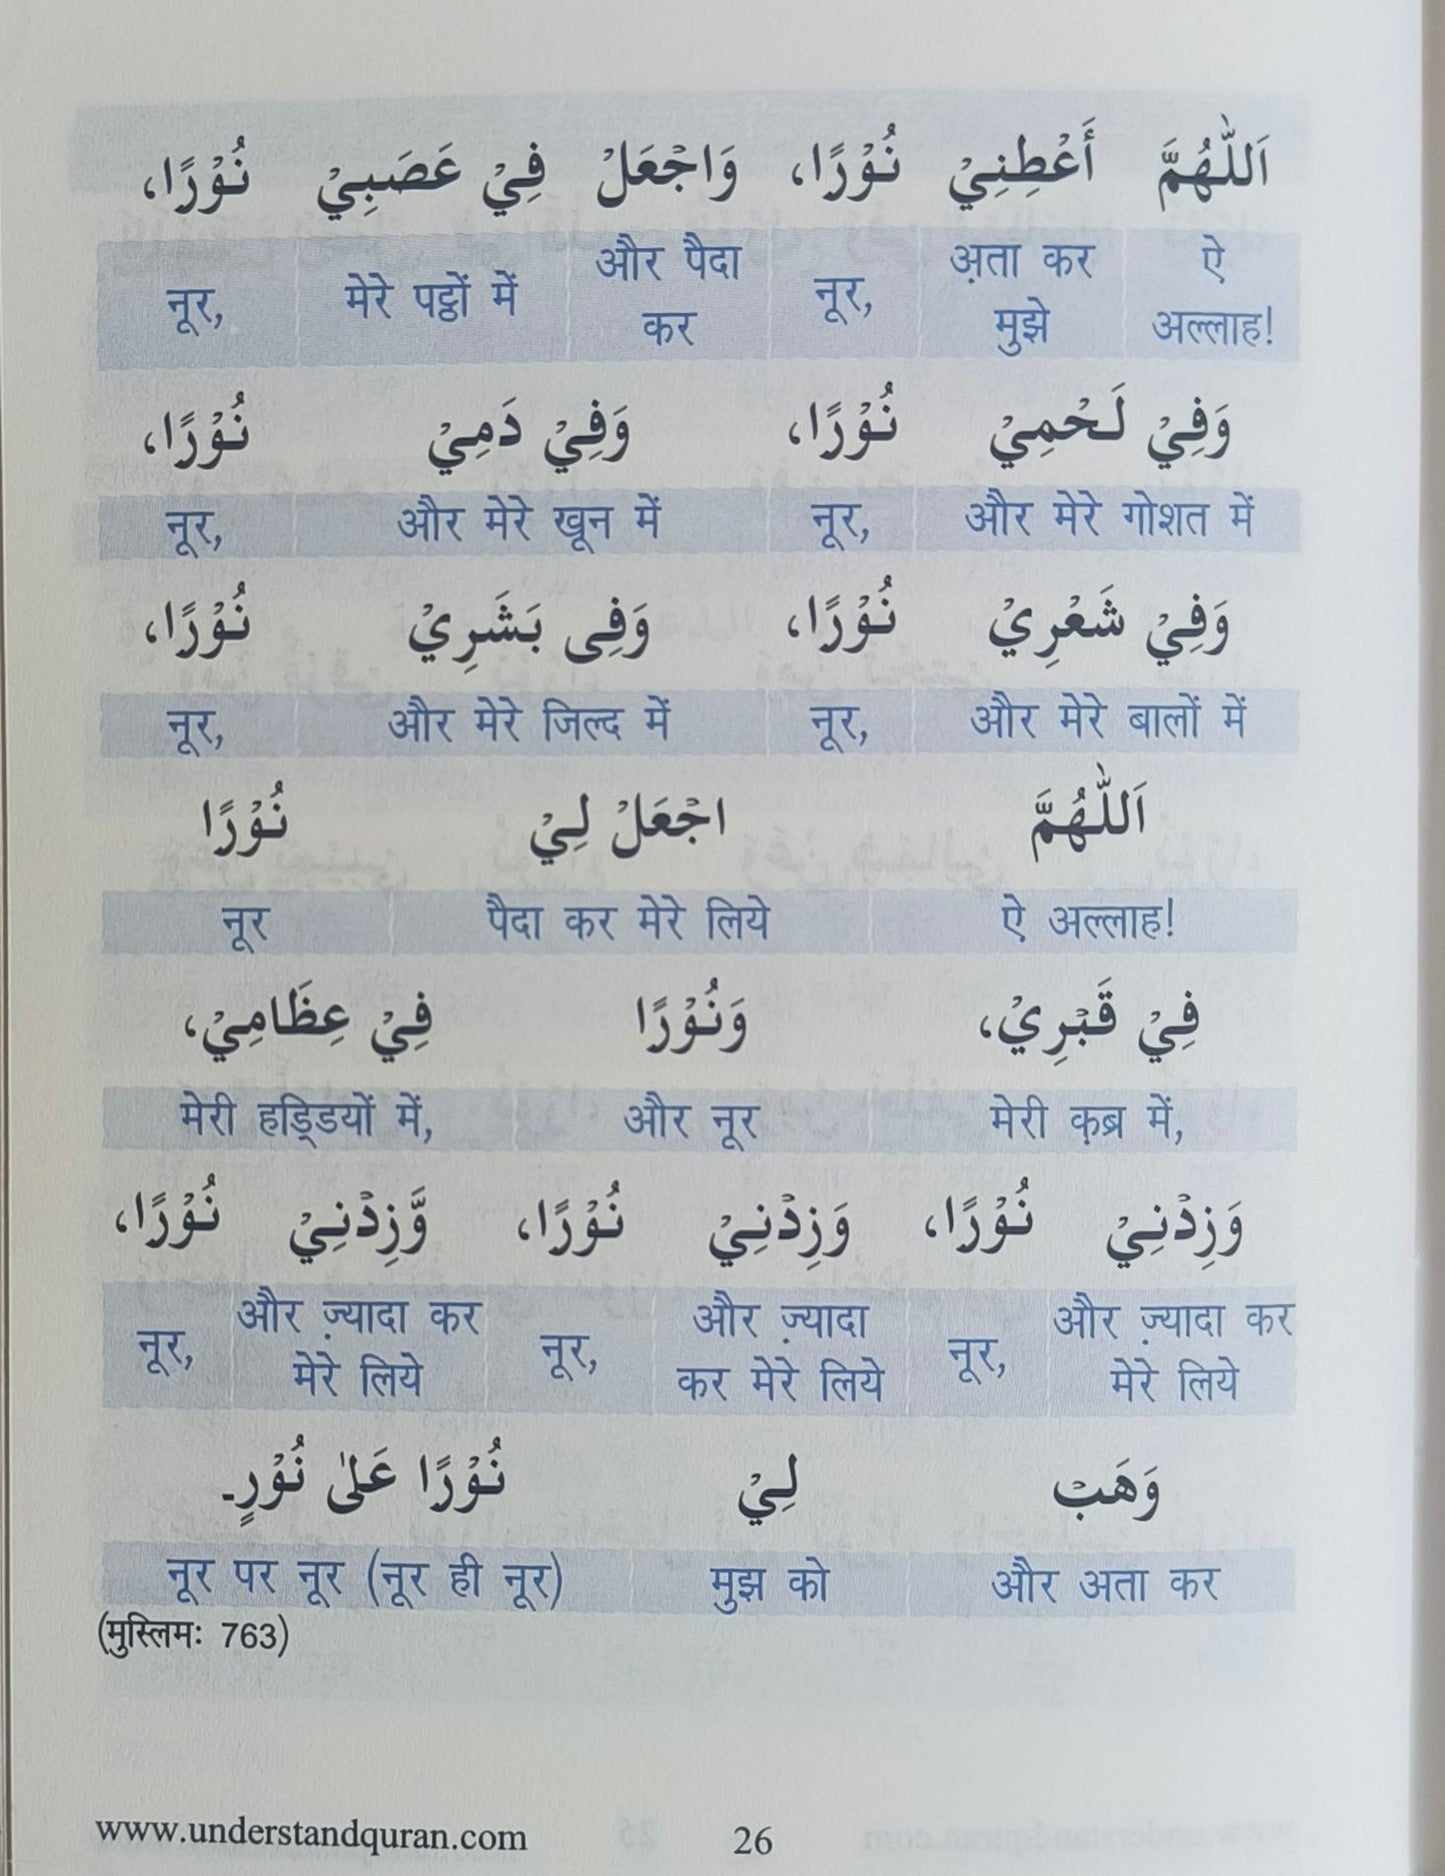 اَللّٰهُمَّ أَعْطِنِيْ نُوْرًا، وَاجْعَلْ فِيْ عَصَبِيْ نُوْرًا،
ऐ अल्लाह! अ़ता कर मुझे नूर, और पैदा कर मेरे पट्ठों में नूर,
وَفِيْ لَحْمِيْ نُوْرًا، وَفِيْ دَمِيْ نُوْرًا،
और मेरे गोशत में नूर, और मेरे खून में नूर,
وَفِيْ شَعْرِيْ نُوْرًا، وَفِى بَشَرِيْ نُوْرًا،
और मेरे बालों में नूर, और मेरे जिल्द में नूर,
اَللّٰهُمَّ اجْعَلْ لِيْ نُوْرًا
ऐ अल्लाह! पैदा कर मेरे लिये नूर
فِيْ قَبْرِيْ، وَنُوْرًا فِيْ عِظَامِيْ،
मेरी क़ब्र में, और नूर मेरी हड्डियों में,
وَزِدْنِيْ نُوْرًا، وَزِدْنِيْ نُوْرًا، وَّزِدْنِيْ نُوْرًا،
और ज़्यादा कर मेरे लिये नूर, और ज़्यादा कर मेरे लिये नूर, और ज़्यादा कर मेरे लिये नूर,
وَهَبْ لِيْ نُوْرًا عَلىٰ نُوْرٍ۔
और अता कर मुझ को नूर पर नूर (नूर ही नूर)
(मुस्लिमः 763)
www.understandquran.com 26